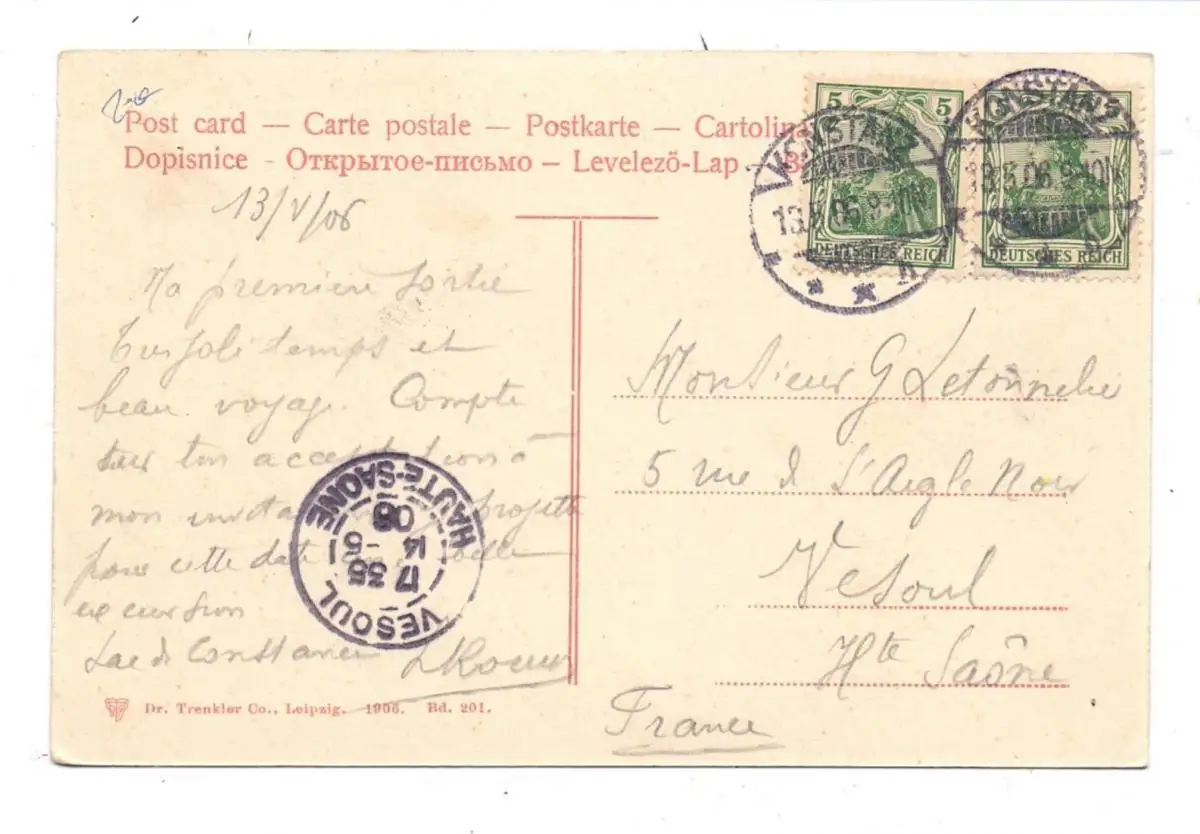 Post card — Carte postale — Postkarte — Cartolina
Dopisnice - Открытое-письмо — Levelező-Lap -
13/V/06
Ma première sortie
Très joli temps et
beau voyage. Compte
sur ton acceptation à
mon projette
pour cette date belle
excursion
Lac de Constance
Dr. Trenkler Co., Leipzig. 1906. Bd. 201.
5 5
DEUTSCHES REICH
KONSTANZ
13.5.06.9-10N.
5
DEUTSCHES REICH
KONSTANZ
13.5.06.9-10N.
Monsieur G Letonnelier
5 rue de l'Aigle Noir
Vesoul
Hte Saône
France
VESOUL
17 35
14 -5
06
HAUTE-SAONE